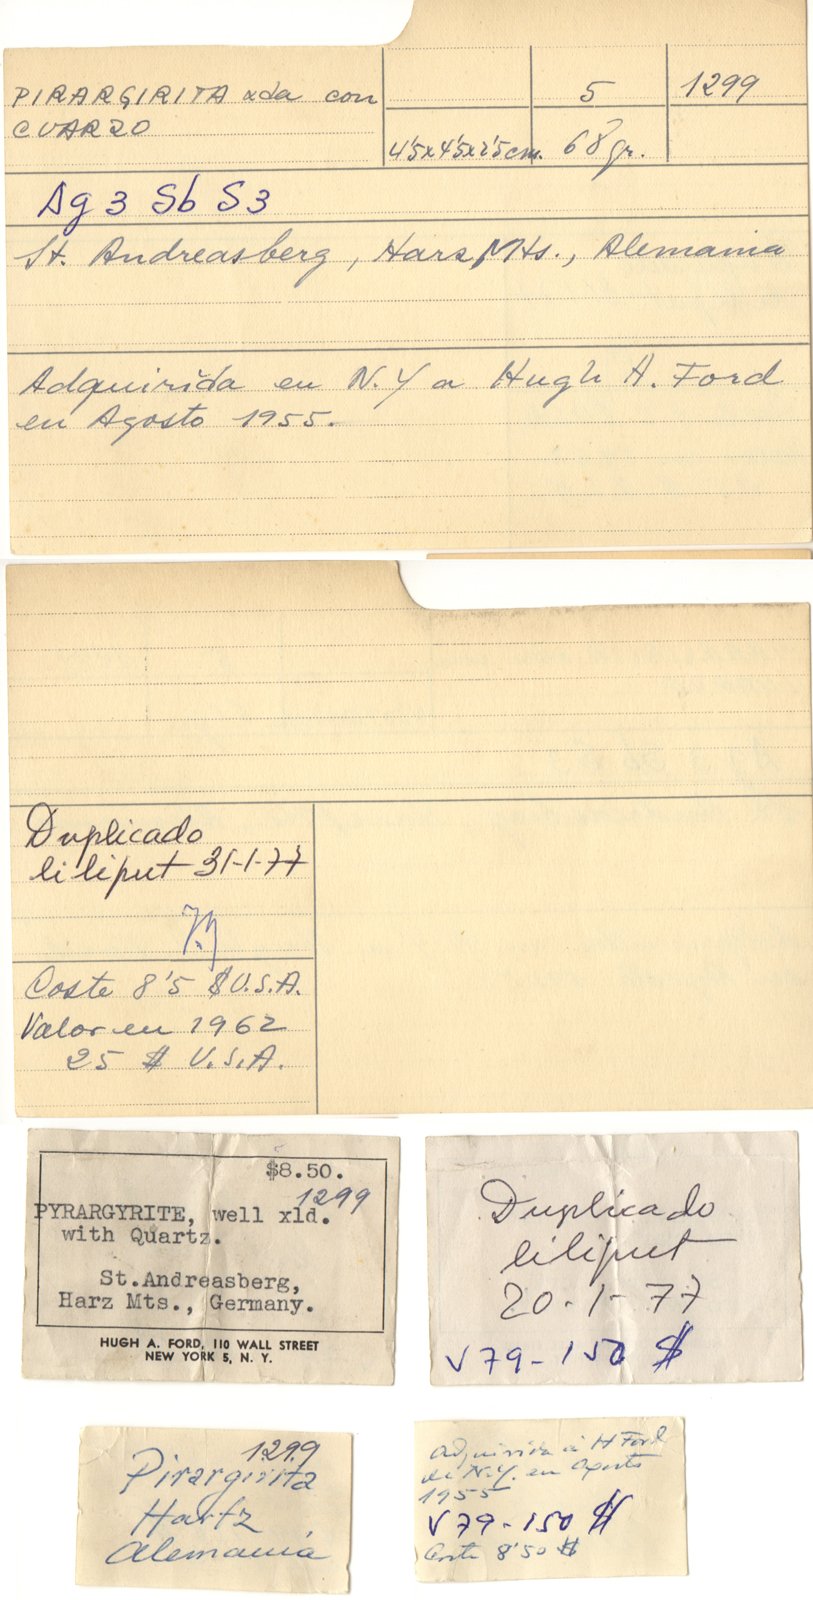 PIRARGIRITA xda con
CUARZO
5
1299
4'5x4'5x2'5cm. 68 gr.
Ag 3 Sb S3
St. Andreasberg, Harz Mts., Alemania
Adquirida en N.Y a Hugh A. Ford
en Agosto 1955.
Duplicado
liliput 31-1-77
Coste 8'5 $ U.S.A.
Valor en 1962
25 $ U.S.A.
$8.50.
1299
PYRARGYRITE, well xld.
with Quartz.
St.Andreasberg,
Harz Mts., Germany.
HUGH A. FORD, 110 WALL STREET
NEW YORK 5, N. Y.
Duplicado
liliput
20-1-77
V 79-150 $
1299
Pirargirita
Hartz
Alemania
Adquirida a H Ford
de N.Y. en Agosto
1955
V 79-150 $
Coste 8'50 $